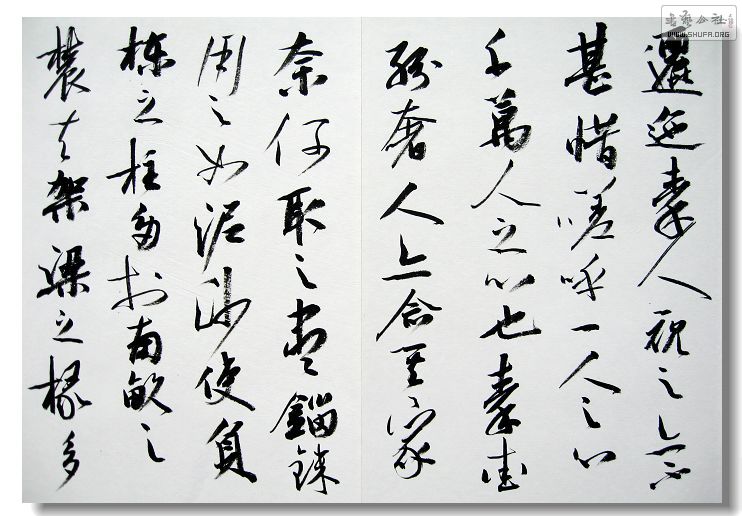 邐迤秦人視之亦不
甚惜嗟呼一人之心
千萬人之心也秦愛
紛奢人亦念其家
奈何取之盡錙銖
用之如泥沙使負
棟之柱多於南畝之
農夫架梁之椽多
書藝公社
WWW.SHUFA.ORG